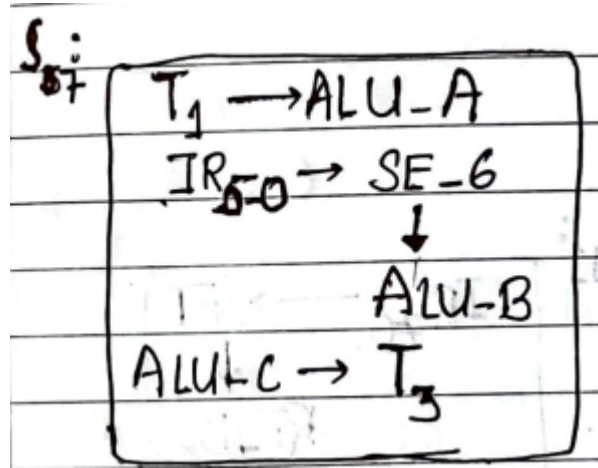 S₇:
T₁ → ALU_A
IR₅₋₀ → SE_6
↓
ALU_B
ALU_C → T₃